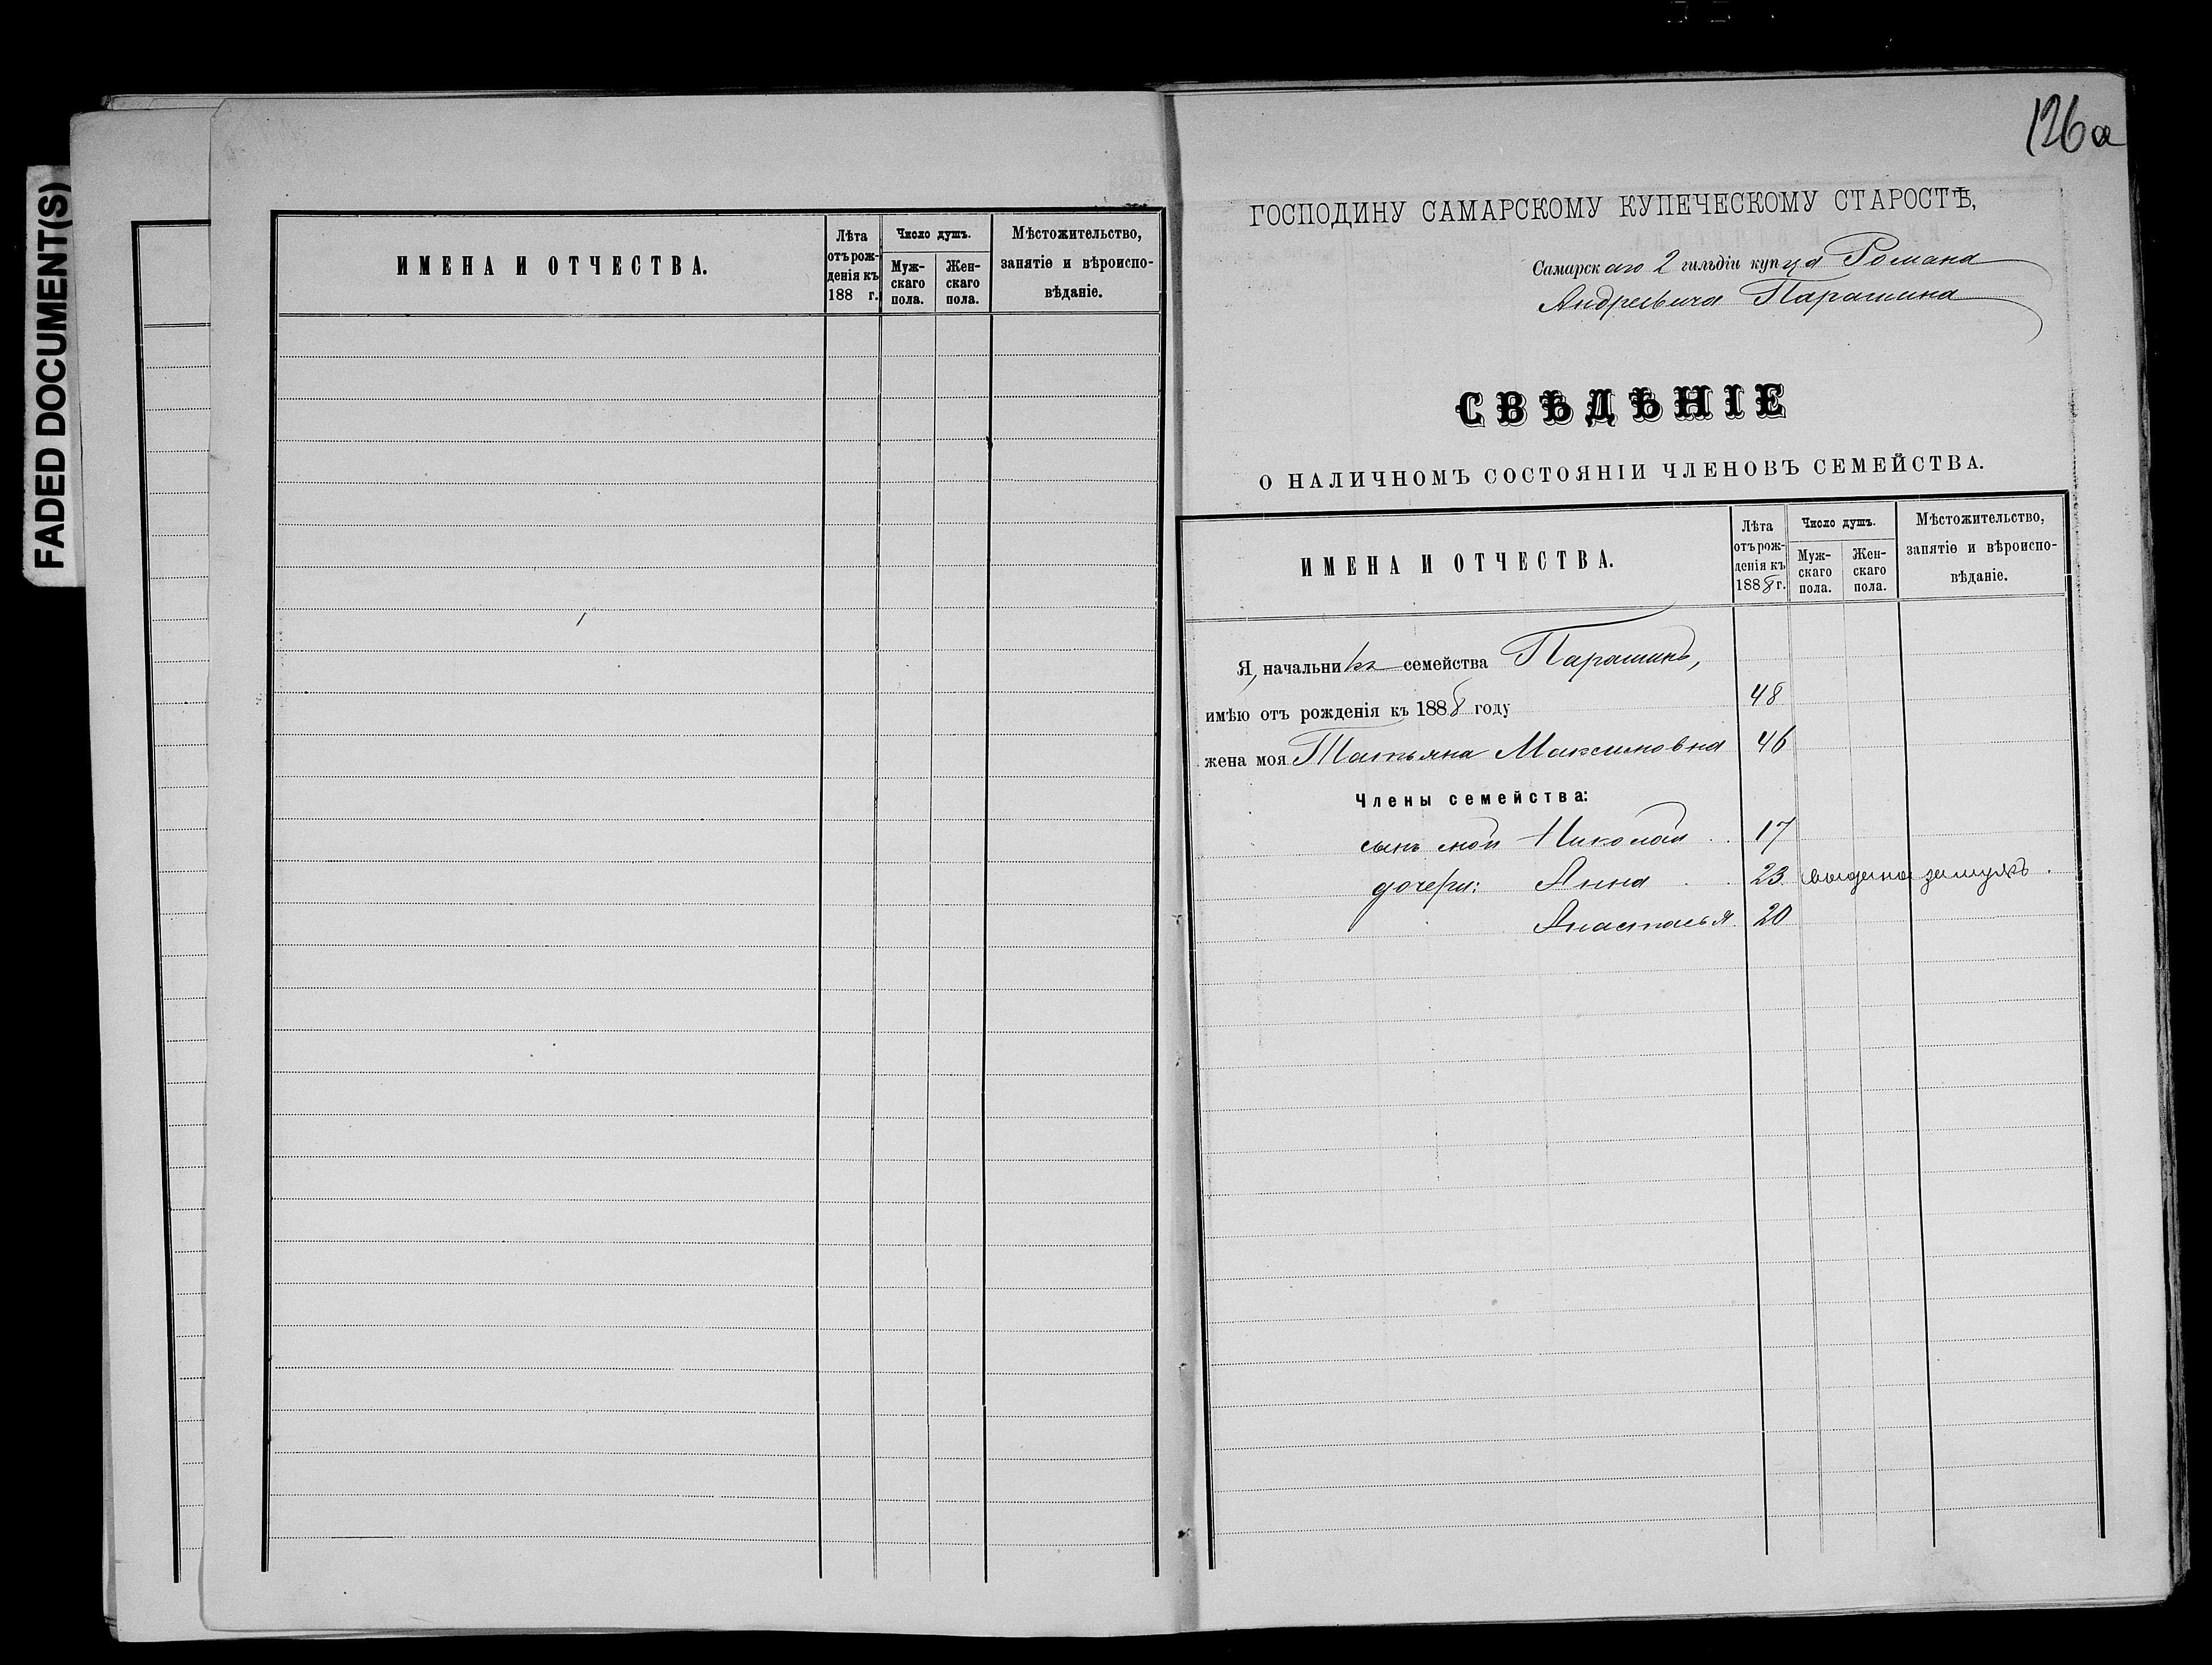 FADED DOCUMENT(S)
ИМЕНА И ОТЧЕСТВА.
Лѣта
отъ рож-
денія къ
188 г.
Число душъ.
Муж-
скаго
пола.
Жен-
скаго
пола.
Мѣстожительство,
занятіе и вѣроиспо-
вѣданіе.
126а
ГОСПОДИНУ САМАРСКОМУ КУПЕЧЕСКОМУ СТАРОСТѢ,
Самарскаго 2 гильдіи купца Романа
Андреевича Парашина
СВѢДѢНІЕ
О НАЛИЧНОМЪ СОСТОЯНІИ ЧЛЕНОВЪ СЕМЕЙСТВА.
ИМЕНА И ОТЧЕСТВА.
Лѣта
отъ рож-
денія къ
1888 г.
Число душъ.
Муж-
скаго
пола.
Жен-
скаго
пола.
Мѣстожительство,
занятіе и вѣроиспо-
вѣданіе.
Я, начальникъ семейства Парашинъ,
имѣю отъ рожденія къ 1888 году 48
жена моя Татьяна Максимовна 46
Члены семейства:
сынъ мой Николай . 17
дочери: Анна . . 23 выдана замужъ .
Анастасья 20